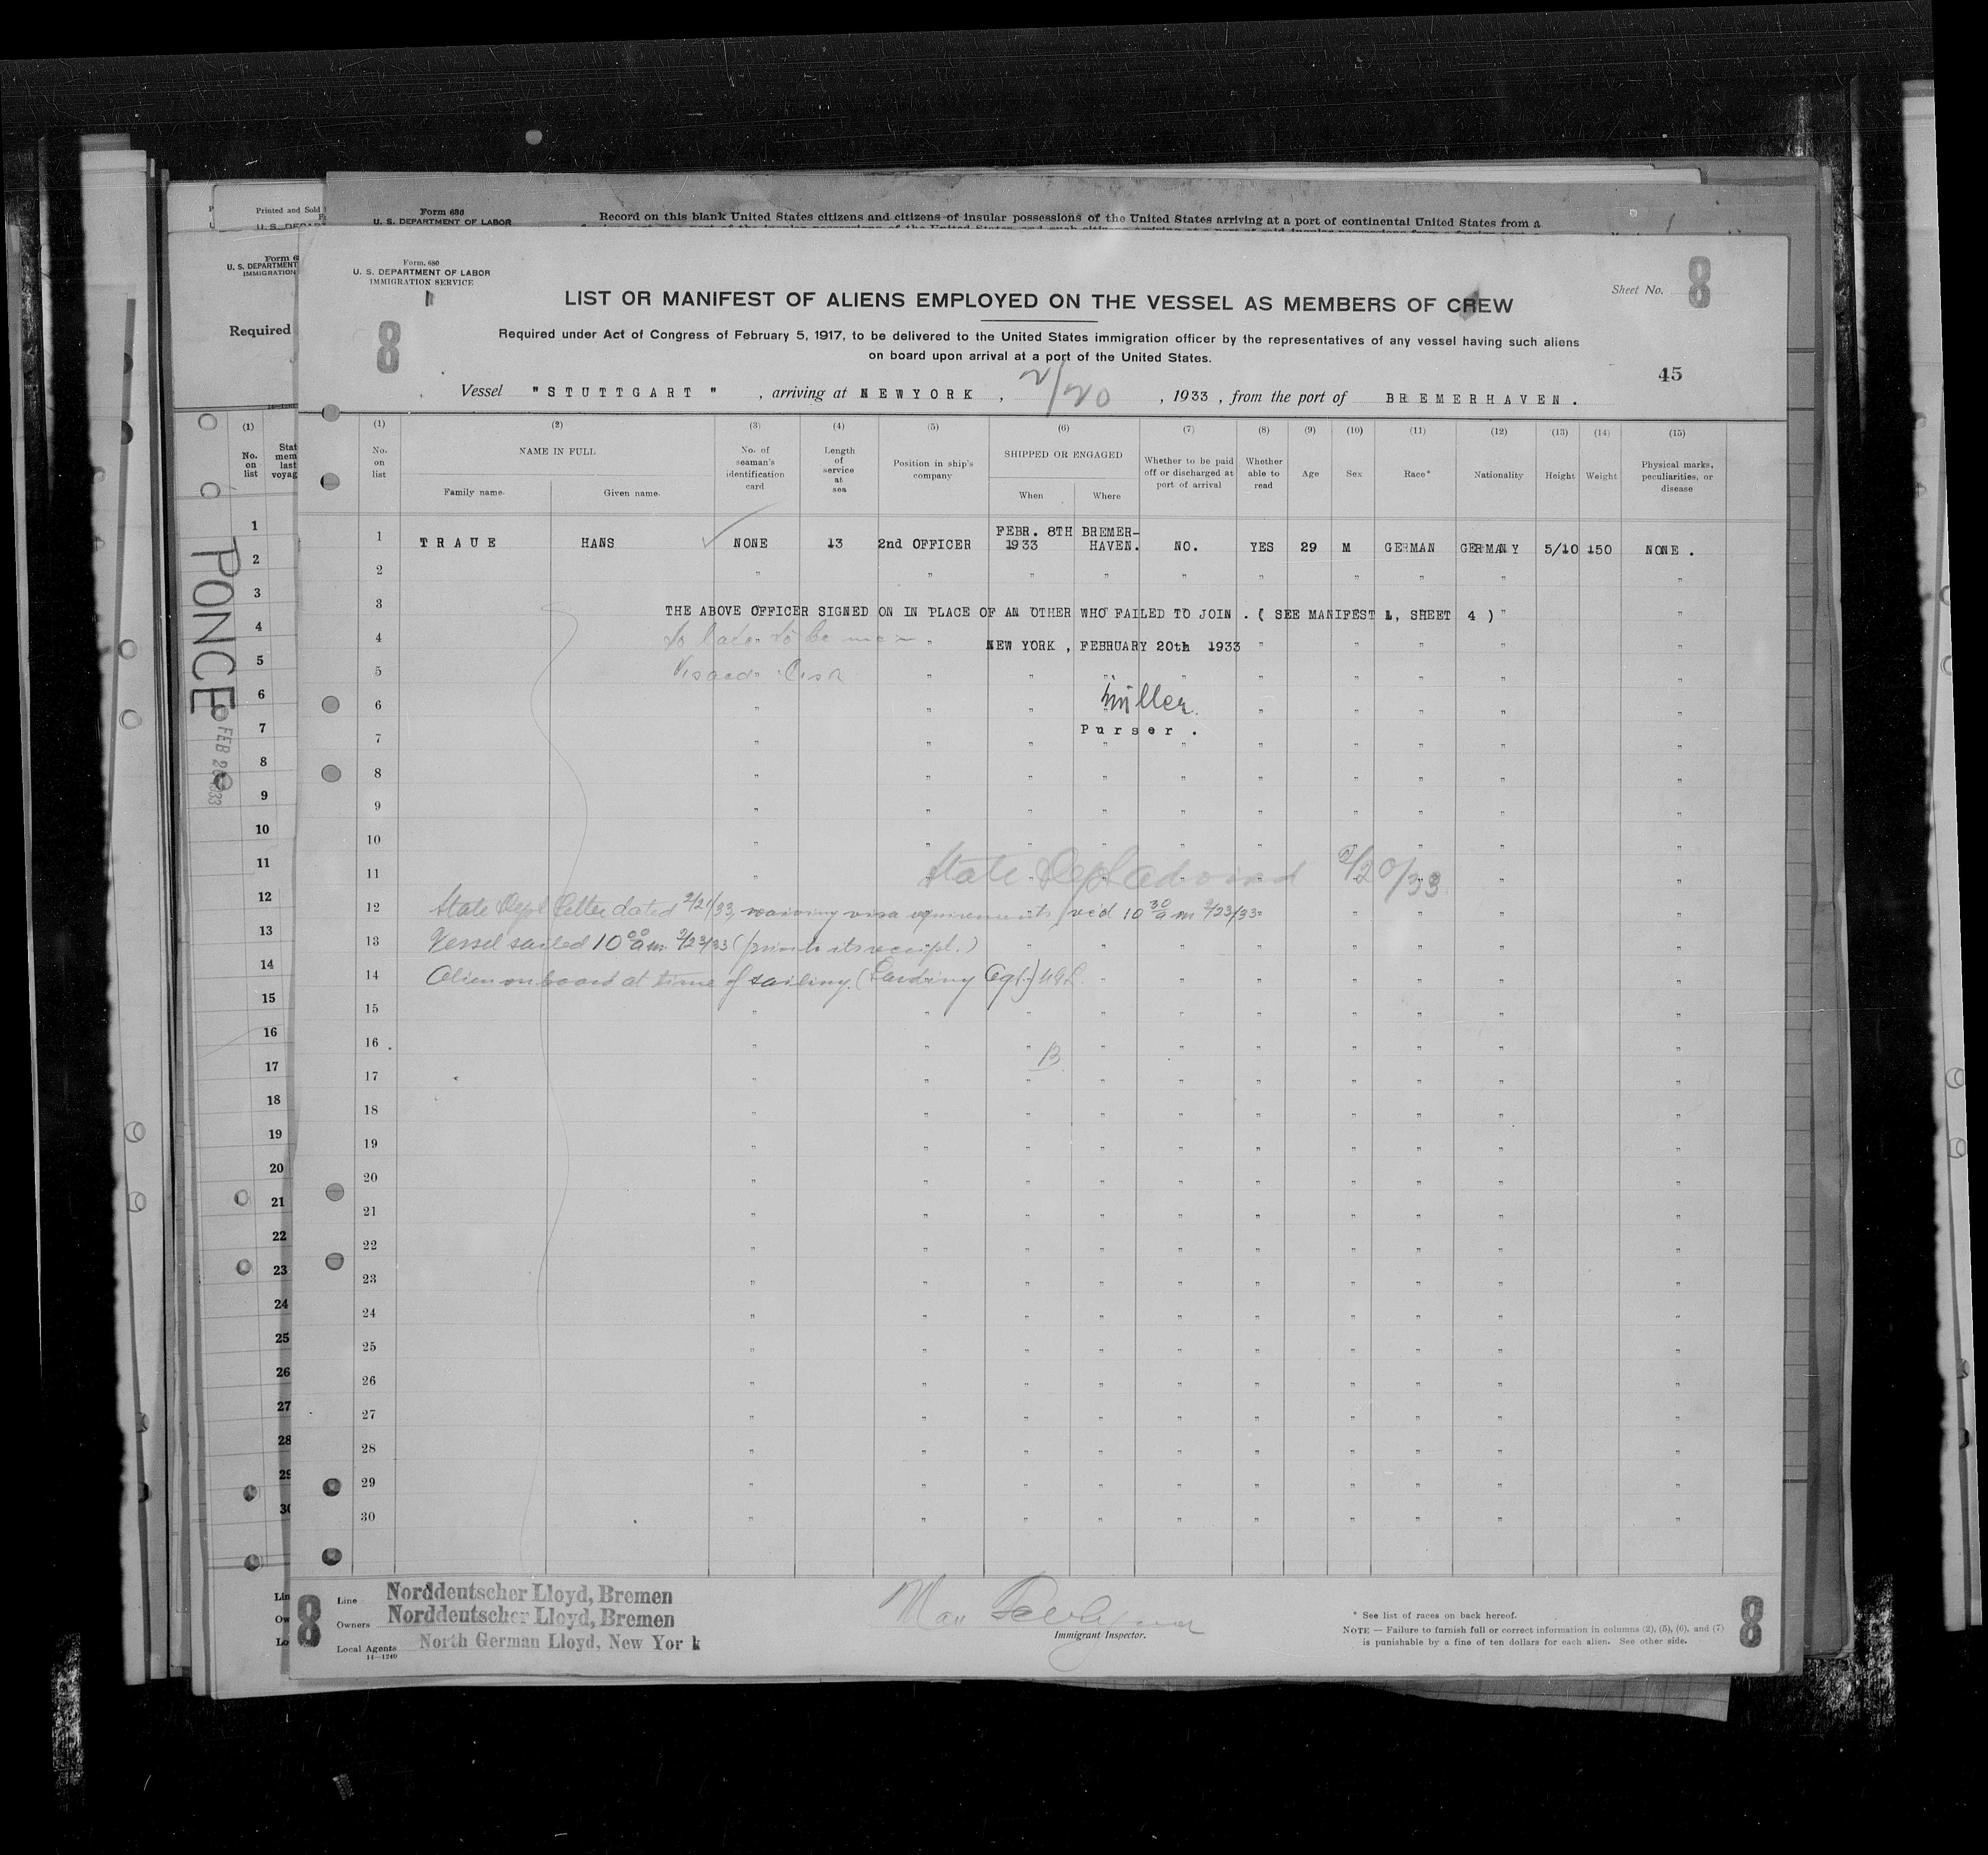 Printed and Sold
U. S. DEPART
Form 680
U. S. DEPARTMENT OF LABOR
Record on this blank United States citizens and citizens of insular possessions of the United States arriving at a port of continental United States from a
U. S. DEPARTMENT
IMMIGRATION
Required
(1)
No.
on
list
Stat
mem
last
voyag
1
2
3
4
5
6
7
8
9
10
11
12
13
14
15
16
17
18
19
20
21
22
23
24
25
26
27
28
29
30
PONCE
FEB 2 1933
Form. 680
U. S. DEPARTMENT OF LABOR
IMMIGRATION SERVICE
8
LIST OR MANIFEST OF ALIENS EMPLOYED ON THE VESSEL AS MEMBERS OF CREW
Sheet No. 8
Required under Act of Congress of February 5, 1917, to be delivered to the United States immigration officer by the representatives of any vessel having such aliens
on board upon arrival at a port of the United States.
45
Vessel "STUTTGART", arriving at NEWYORK, 2/20, 1933, from the port of BREMERHAVEN.
(1) (2) (3) (4) (5) (6) (7) (8) (9) (10) (11) (12) (13) (14) (15)
No. on list
NAME IN FULL
Family name. Given name.
No. of seaman's identification card
Length of service at sea
Position in ship's company
SHIPPED OR ENGAGED
When Where
Whether to be paid off or discharged at port of arrival
Whether able to read
Age
Sex
Race*
Nationality
Height
Weight
Physical marks, peculiarities, or disease
1 TRAUE HANS NONE 13 2nd OFFICER FEBR. 8TH 1933 BREMER-HAVEN. NO. YES 29 M GERMAN GERMANY 5/10 150 NONE.
2
3 THE ABOVE OFFICER SIGNED ON IN PLACE OF AN OTHER WHO FAILED TO JOIN. ( SEE MANIFEST 1, SHEET 4 )
4 NEW YORK, FEBRUARY 20th 1933
5
6 Müller.
7 Purser.
8
9
10
11 State Dept advised 2/20/33
12 State Dept letter dated 2/21/33, waiving visa requirements, rec'd 10 30 am 2/23/33
13 Vessel sailed 10 00 am 2/23/33 (prior to its receipt.)
14 Alien on board at time of sailing.
15
16 B
17
18
19
20
21
22
23
24
25
26
27
28
29
30
8
Line Norddeutscher Lloyd, Bremen
Owners Norddeutscher Lloyd, Bremen
Local Agents North German Lloyd, New York
14—1240
Immigrant Inspector.
* See list of races on back hereof.
NOTE — Failure to furnish full or correct information in columns (2), (5), (6), and (7)
is punishable by a fine of ten dollars for each alien. See other side.
8